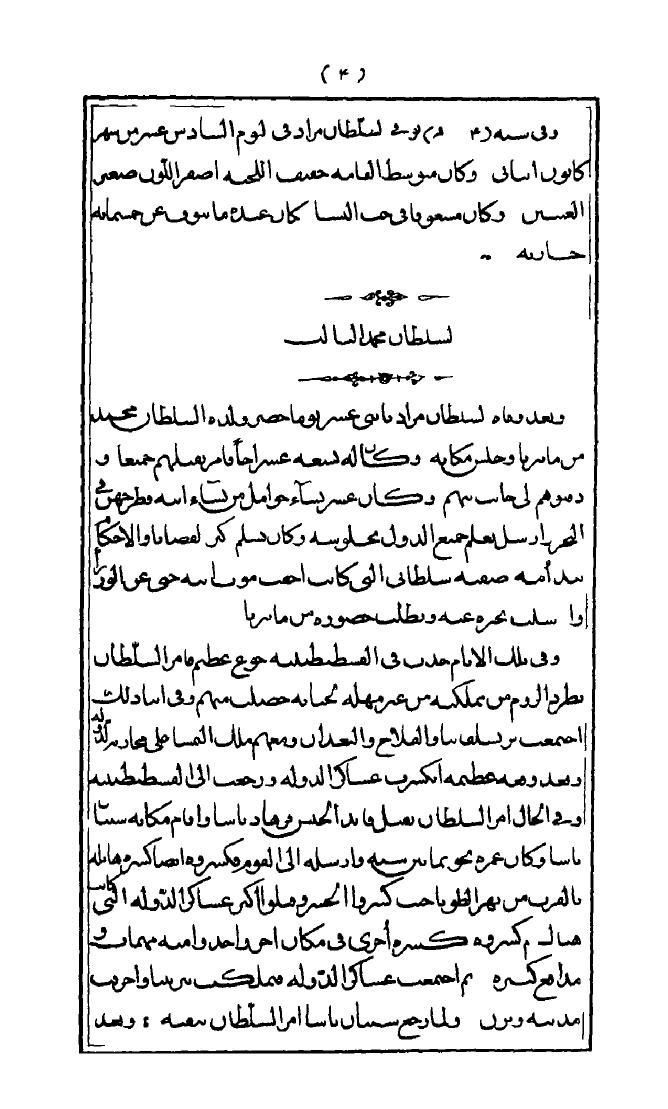 ( ٤ )
وفى سنة (٤ ) توفى لسلطان مراد فى ليوم السادس عشر من شهر
كانون اثانى وكان متوسط القامه خفيف اللحيه اصفر اللون صغير
العينين وكان مشغوفا فى حب النسا كان عنده ما ينوف عن خمسمايه
جاريه ..
لسلطان محمد الثالث
وبعد وفاه لسلطان مراد باثنى عشر يوما حضر ولده السلطان محمد
من مانيريا وجلس مكانه وكان له تسعه عشر اخاً فامر بقتلهم جميعا و
دفنوهم لى جانب بيهم وكان عشر نسآء حوامل من نسآء ابيه فطرحهن فى
البحر ارسل يعلم جميع الدول بجلوسه وكان تسلم كبر لقضايا والاحكام
بيد أمه صفيه سلطانى التى كانت اخفت موت ابيه حتى عن الوزرا
وا سلت تخبره عنه وتطلب حضوره من مانيريا
وفى تلك الايام حدث فى القسطنطينيه جوع عظيم فامر السلطان
بطرد الروم من مملكته من غير مهله لخيانه حصلت منهم وفى اثنا ذلك
اجتمعت ترنسلفانيا والفلاخ والبغدان ومعهم ملك النمسا على محاربة الدوله
وبعد وقعه عظيمه انكسرت عساكر الدوله ورجعت الى القسطنطينيه
وفى الحال امر السلطان بقتل قايد الجيش فرهاد باشا واقام مكانه سنان
باشا وكان عمره نحو ثمانين سنه وارسله الى القوم فكسروه ايضا كسره هايله
بالقرب من نهر الطونا حيث كسروا الجسر وقتلوا اكثر عساكر الدوله التى كانت
هنالك ثم كسروه كسره أخرى فى مكان اخر واخذوا منه مهمات و
مدافع كثيره ثم اجتمعت عساكر الدوله فملكت ترنسا واخربت
مدينه ويرن ولما رجع سنان باشا امر السلطان بنفيه : وبعد